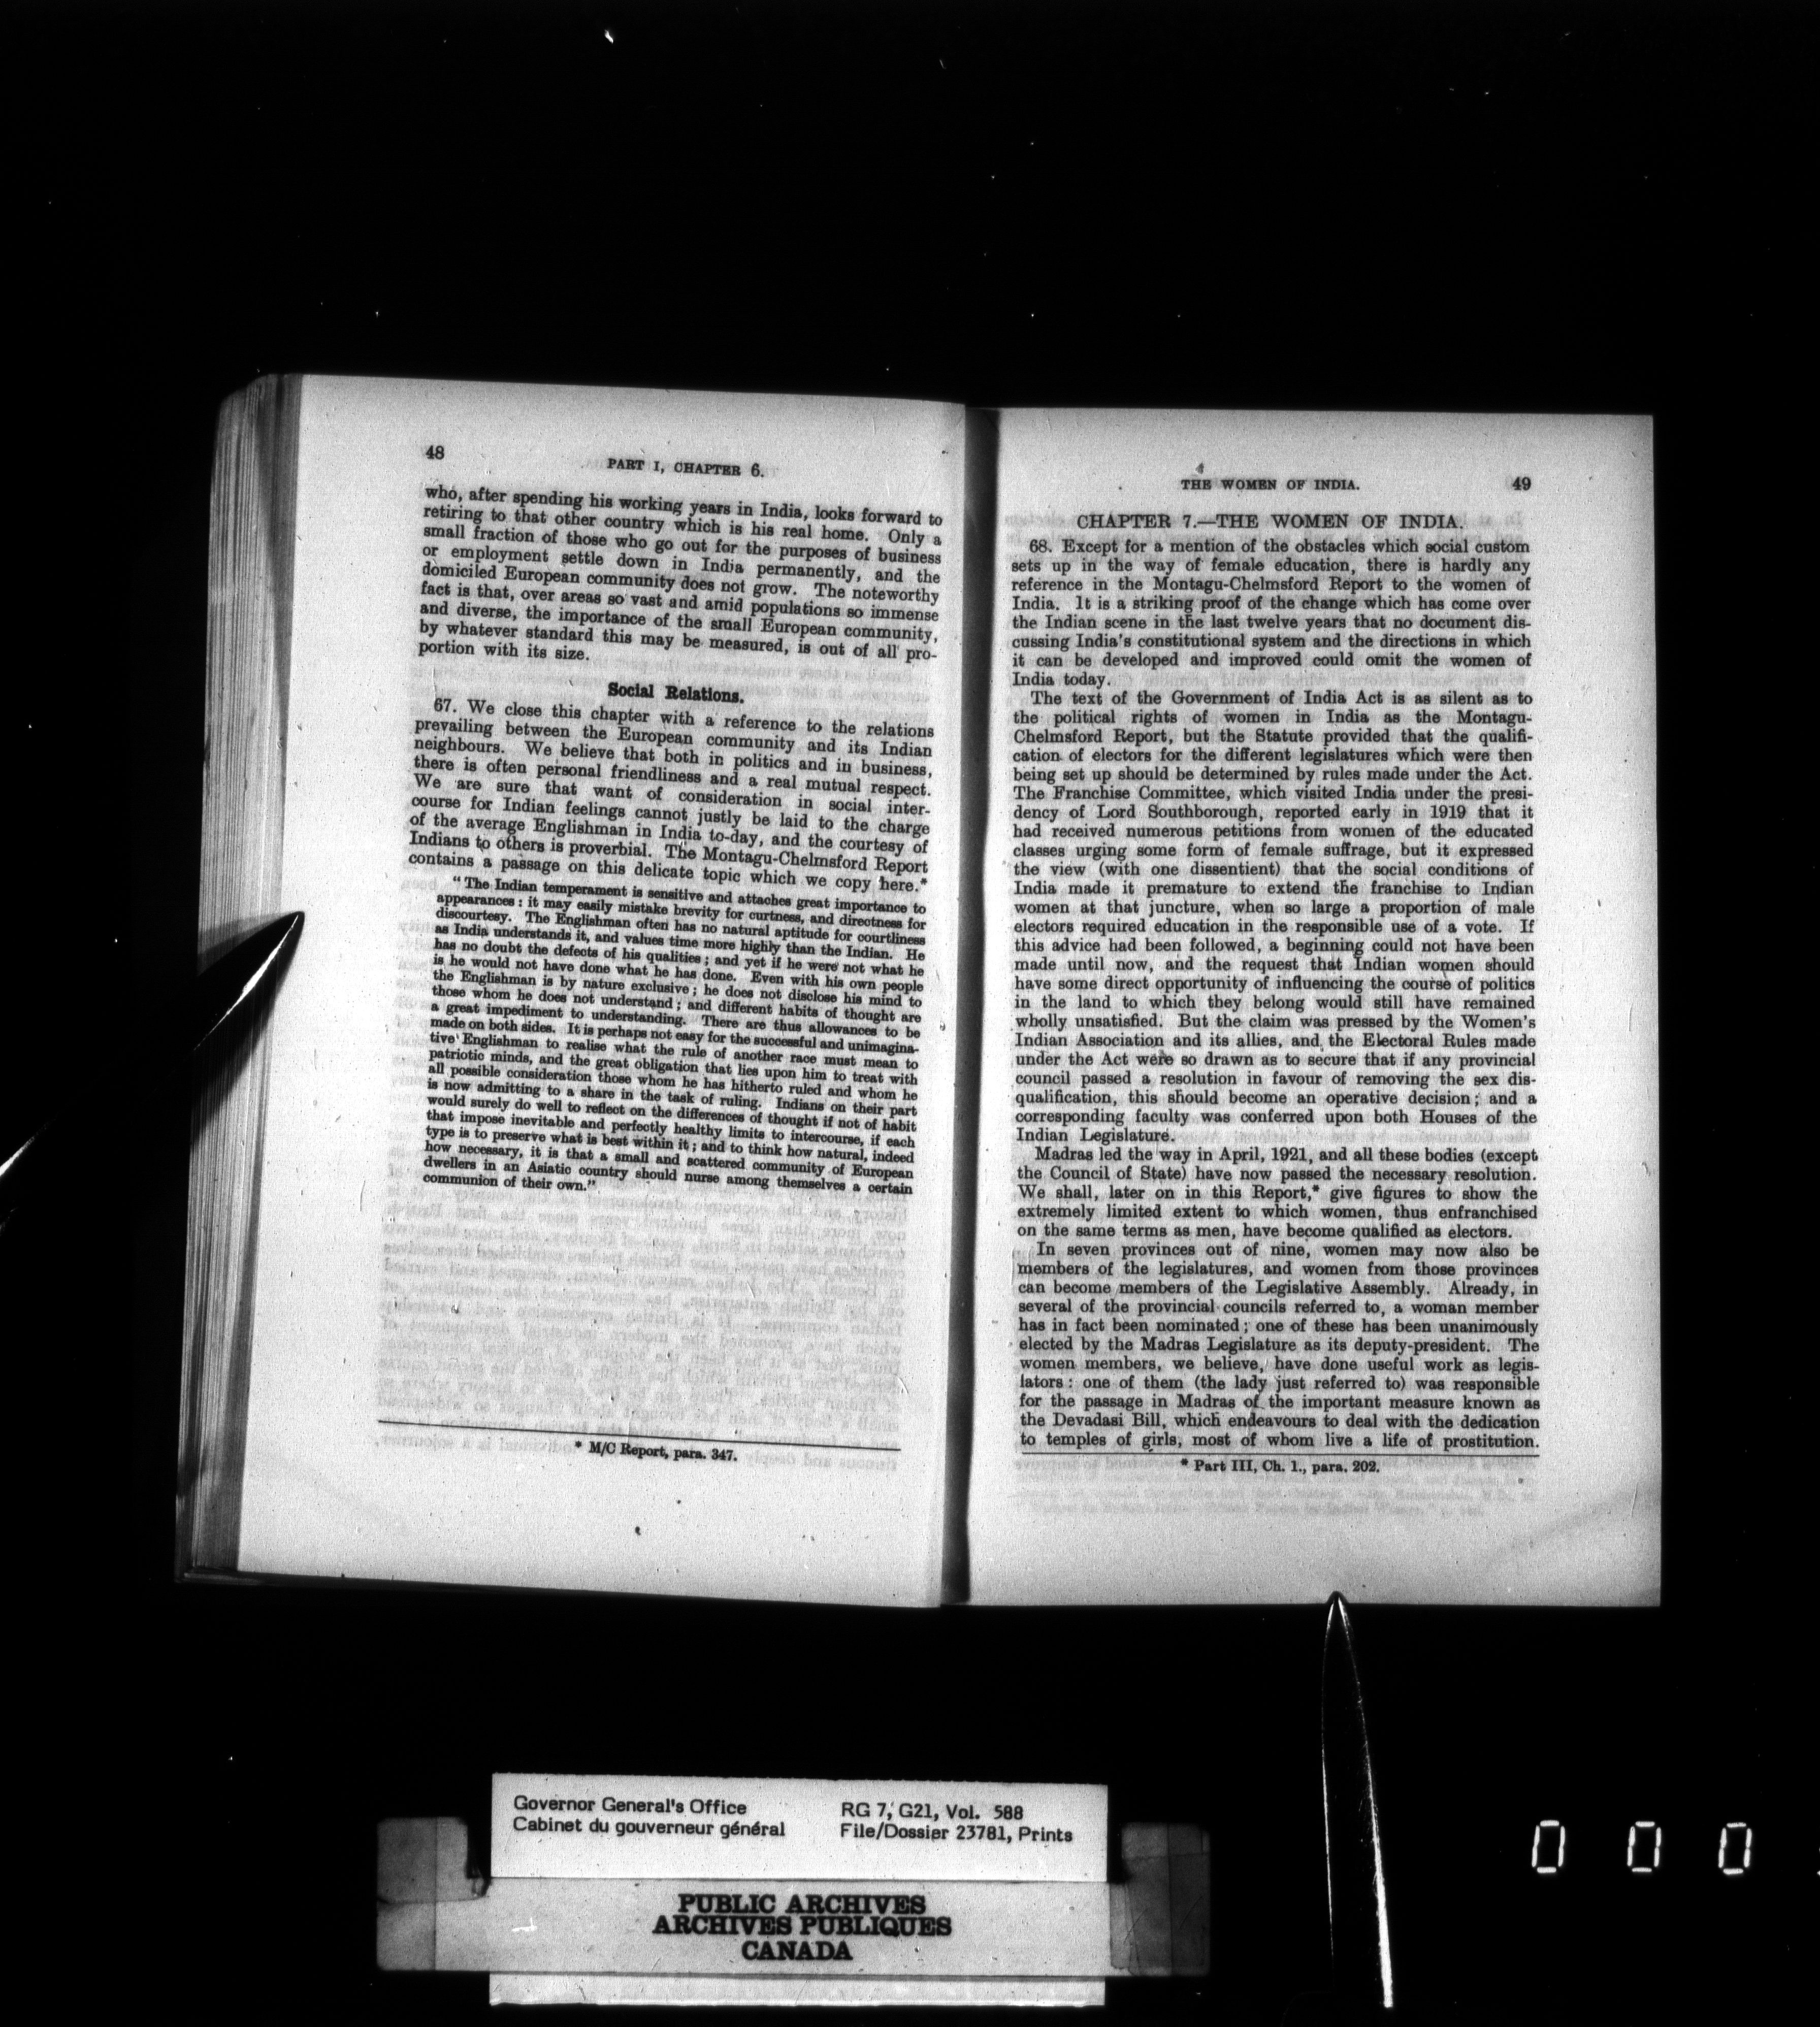 48
PART I, CHAPTER 6.
who, after spending his working years in India, looks forward to
retiring to that other country which is his real home. Only a
small fraction of those who go out for the purposes of business
or employment settle down in India permanently, and the
domiciled European community does not grow. The noteworthy
fact is that, over areas so vast and amid populations so immense
and diverse, the importance of the small European community,
by whatever standard this may be measured, is out of all pro-
portion with its size.
Social Relations.
67. We close this chapter with a reference to the relations
prevailing between the European community and its Indian
neighbours. We believe that both in politics and in business,
there is often personal friendliness and a real mutual respect.
We are sure that want of consideration in social inter-
course for Indian feelings cannot justly be laid to the charge
of the average Englishman in India to-day, and the courtesy of
Indians to others is proverbial. The Montagu-Chelmsford Report
contains a passage on this delicate topic which we copy here.*
" The Indian temperament is sensitive and attaches great importance to
appearances : it may easily mistake brevity for curtness, and directness for
discourtesy. The Englishman often has no natural aptitude for courtliness
as India understands it, and values time more highly than the Indian. He
has no doubt the defects of his qualities ; and yet if he were not what he
is he would not have done what he has done. Even with his own people
the Englishman is by nature exclusive ; he does not disclose his mind to
those whom he does not understand ; and different habits of thought are
a great impediment to understanding. There are thus allowances to be
made on both sides. It is perhaps not easy for the successful and unimagina-
tive Englishman to realise what the rule of another race must mean to
patriotic minds, and the great obligation that lies upon him to treat with
all possible consideration those whom he has hitherto ruled and whom he
is now admitting to a share in the task of ruling. Indians on their part
would surely do well to reflect on the differences of thought if not of habit
that impose inevitable and perfectly healthy limits to intercourse, if each
type is to preserve what is best within it ; and to think how natural, indeed
how necessary, it is that a small and scattered community of European
dwellers in an Asiatic country should nurse among themselves a certain
communion of their own."
* M/C Report, para. 347.
THE WOMEN OF INDIA.
49
CHAPTER 7.—THE WOMEN OF INDIA.
68. Except for a mention of the obstacles which social custom
sets up in the way of female education, there is hardly any
reference in the Montagu-Chelmsford Report to the women of
India. It is a striking proof of the change which has come over
the Indian scene in the last twelve years that no document dis-
cussing India's constitutional system and the directions in which
it can be developed and improved could omit the women of
India today.
The text of the Government of India Act is as silent as to
the political rights of women in India as the Montagu-
Chelmsford Report, but the Statute provided that the qualifi-
cation of electors for the different legislatures which were then
being set up should be determined by rules made under the Act.
The Franchise Committee, which visited India under the presi-
dency of Lord Southborough, reported early in 1919 that it
had received numerous petitions from women of the educated
classes urging some form of female suffrage, but it expressed
the view (with one dissentient) that the social conditions of
India made it premature to extend the franchise to Indian
women at that juncture, when so large a proportion of male
electors required education in the responsible use of a vote. If
this advice had been followed, a beginning could not have been
made until now, and the request that Indian women should
have some direct opportunity of influencing the course of politics
in the land to which they belong would still have remained
wholly unsatisfied. But the claim was pressed by the Women's
Indian Association and its allies, and the Electoral Rules made
under the Act were so drawn as to secure that if any provincial
council passed a resolution in favour of removing the sex dis-
qualification, this should become an operative decision; and a
corresponding faculty was conferred upon both Houses of the
Indian Legislature.
Madras led the way in April, 1921, and all these bodies (except
the Council of State) have now passed the necessary resolution.
We shall, later on in this Report,* give figures to show the
extremely limited extent to which women, thus enfranchised
on the same terms as men, have become qualified as electors.
In seven provinces out of nine, women may now also be
members of the legislatures, and women from those provinces
can become members of the Legislative Assembly. Already, in
several of the provincial councils referred to, a woman member
has in fact been nominated ; one of these has been unanimously
elected by the Madras Legislature as its deputy-president. The
women members, we believe, have done useful work as legis-
lators : one of them (the lady just referred to) was responsible
for the passage in Madras of the important measure known as
the Devadasi Bill, which endeavours to deal with the dedication
to temples of girls, most of whom live a life of prostitution.
* Part III, Ch. 1., para. 202.
Governor General's Office
Cabinet du gouverneur général
RG 7, G21, Vol. 588
File/Dossier 23781, Prints
PUBLIC ARCHIVES
ARCHIVES PUBLIQUES
CANADA
0 0 0